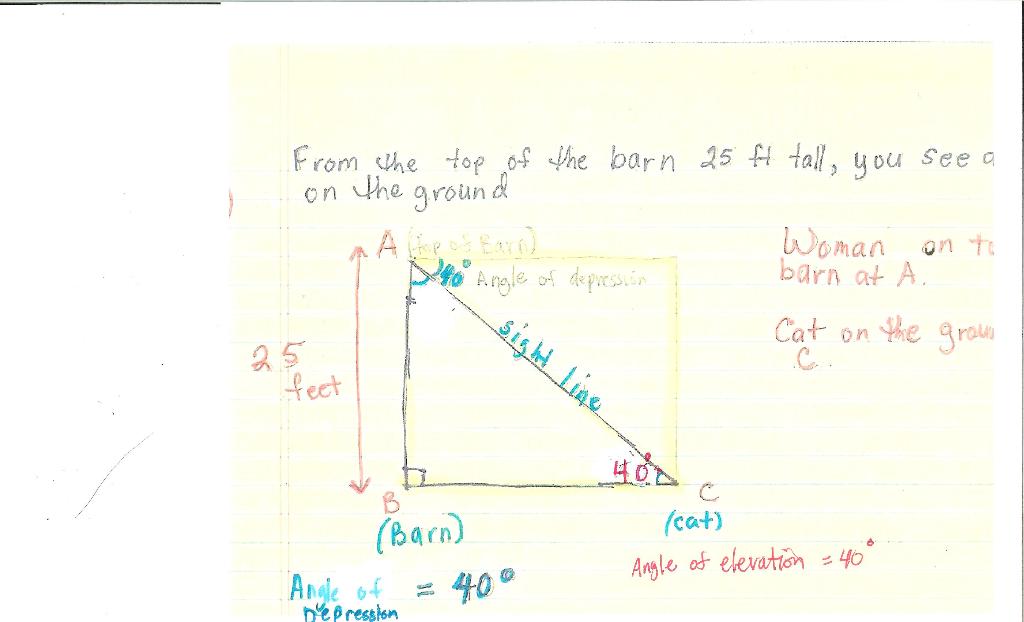 From the top of the barn 25 ft tall, you see a
on the ground
A (top of Barn)
40° Angle of depression
Woman on to
barn at A.
Cat on the groun
C.
sight line
25
feet
40°
B
C
(Barn)
(cat)
Angle of elevation = 40°
Angle of = 40°
Depression